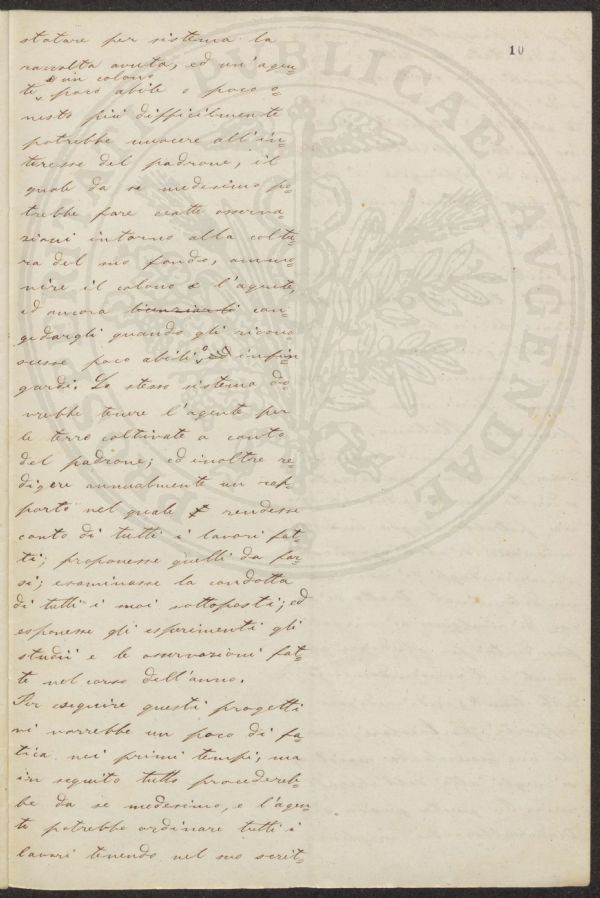 10
statare per sistema la
raccolta avuta, ed un'agen=
o un colono
te poco abile o poco o=
nesto più difficilmente
potrebbe nuocere all'in=
teresse del padrone, il
quale da se medesimo po=
trebbe fare esatte osserva=
zioni intorno alla coltu=
ra del suo fondo, ammo=
nire il colono e l'agente,
ed ancora licenziarli con=
gedargli quando gli ricono=
scesse poco abili o ed infin=
gardi. Lo stesso sistema do=
vrebbe tenere l'agente per
le terre coltivate a conto
del padrone; ed inoltre re=
digere annualmente un rap=
porto nel quale rendesse
conto di tutti i lavori fat=
ti; proponesse quelli da far=
si; esaminasse la condotta
di tutti i suoi sottoposti; ed
esponesse gli esperimenti gli
studii e le osservazioni fat=
te nel corso dell'anno.
Per eseguire questi progetti
vi vorrebbe un poco di fa=
tica nei primi tempi, ma
in seguito tutto procedereb=
be da se medesimo, e l'agen=
te potrebbe ordinare tutti i
lavori tenendo nel suo scrit=
PUBLICAE AUGENDAE